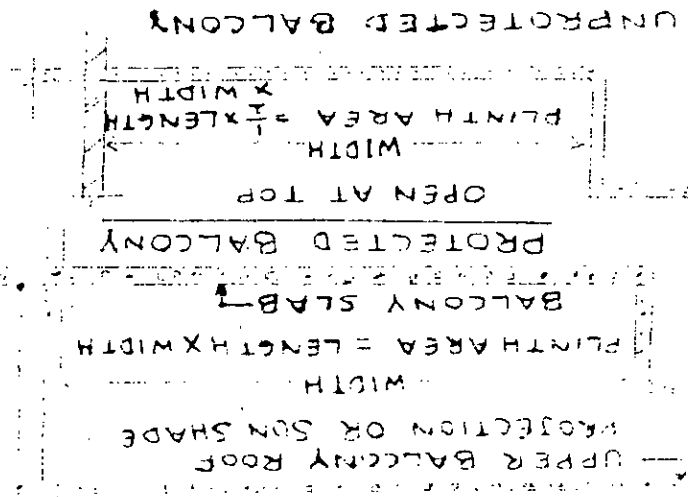 UPPER BALCONY ROOF
PROJECTION OR SUN SHADE
WIDTH
PLINTH AREA = LENGTH X WIDTH
BALCONY SLAB
PROTECTED BALCONY
OPEN AT TOP
WIDTH
PLINTH AREA = 1/2 X LENGTH
X WIDTH
UNPROTECTED BALCONY